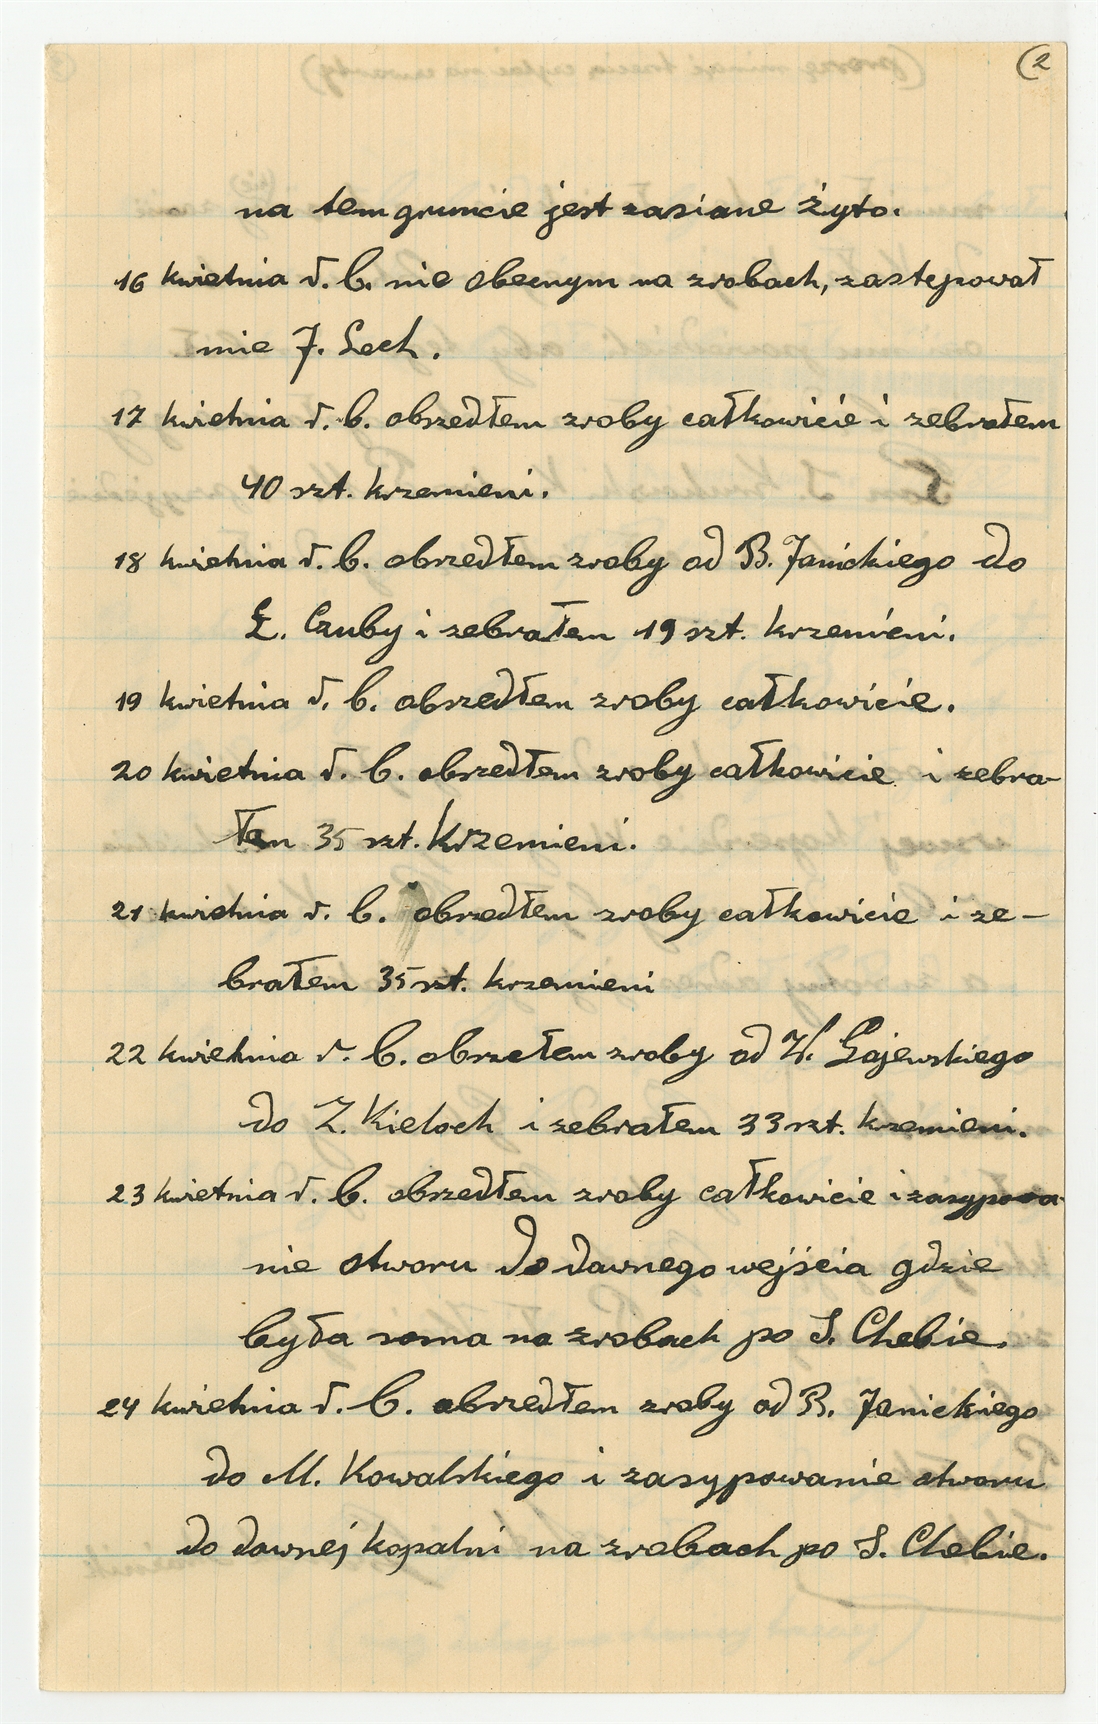 (2
na tem gruncie jest zasiane żyto.
16 kwietnia r. b. nie obecnym na zrobach, zastępował
mie J. Lech.
17 kwietnia r. b. obszedłem zroby całkowicie i zebrałem
40 szt. krzemieni.
18 kwietnia r. b. obszedłem zroby od B. Janickiego do
Ł. Czuby i zebrałem 19 szt. krzemieni.
19 kwietnia r. b. obszedłem zroby całkowicie.
20 kwietnia r. b. obszedłem zroby całkowicie i zebra-
łem 35 szt. krzemieni.
21 kwietnia r. b. obszedłem zroby całkowicie i ze-
brałem 35 szt. krzemieni
22 kwietnia r. b. obszełem zroby od W. Gajewskiego
do Z. Kieloch i zebrałem 33 szt. krzemieni.
23 kwietnia r. b. obszedłem zroby całkowicie i zasypowa
nie otworu do dawnego wejścia gdzie
była sosna na zrobach po S. Chebie.
24 kwietnia r. b. obszedłem zroby od B. Janickiego
do M. Kowalskiego i zasypowanie otworu
do dawnej kopalni na zrobach po S. Chebie.